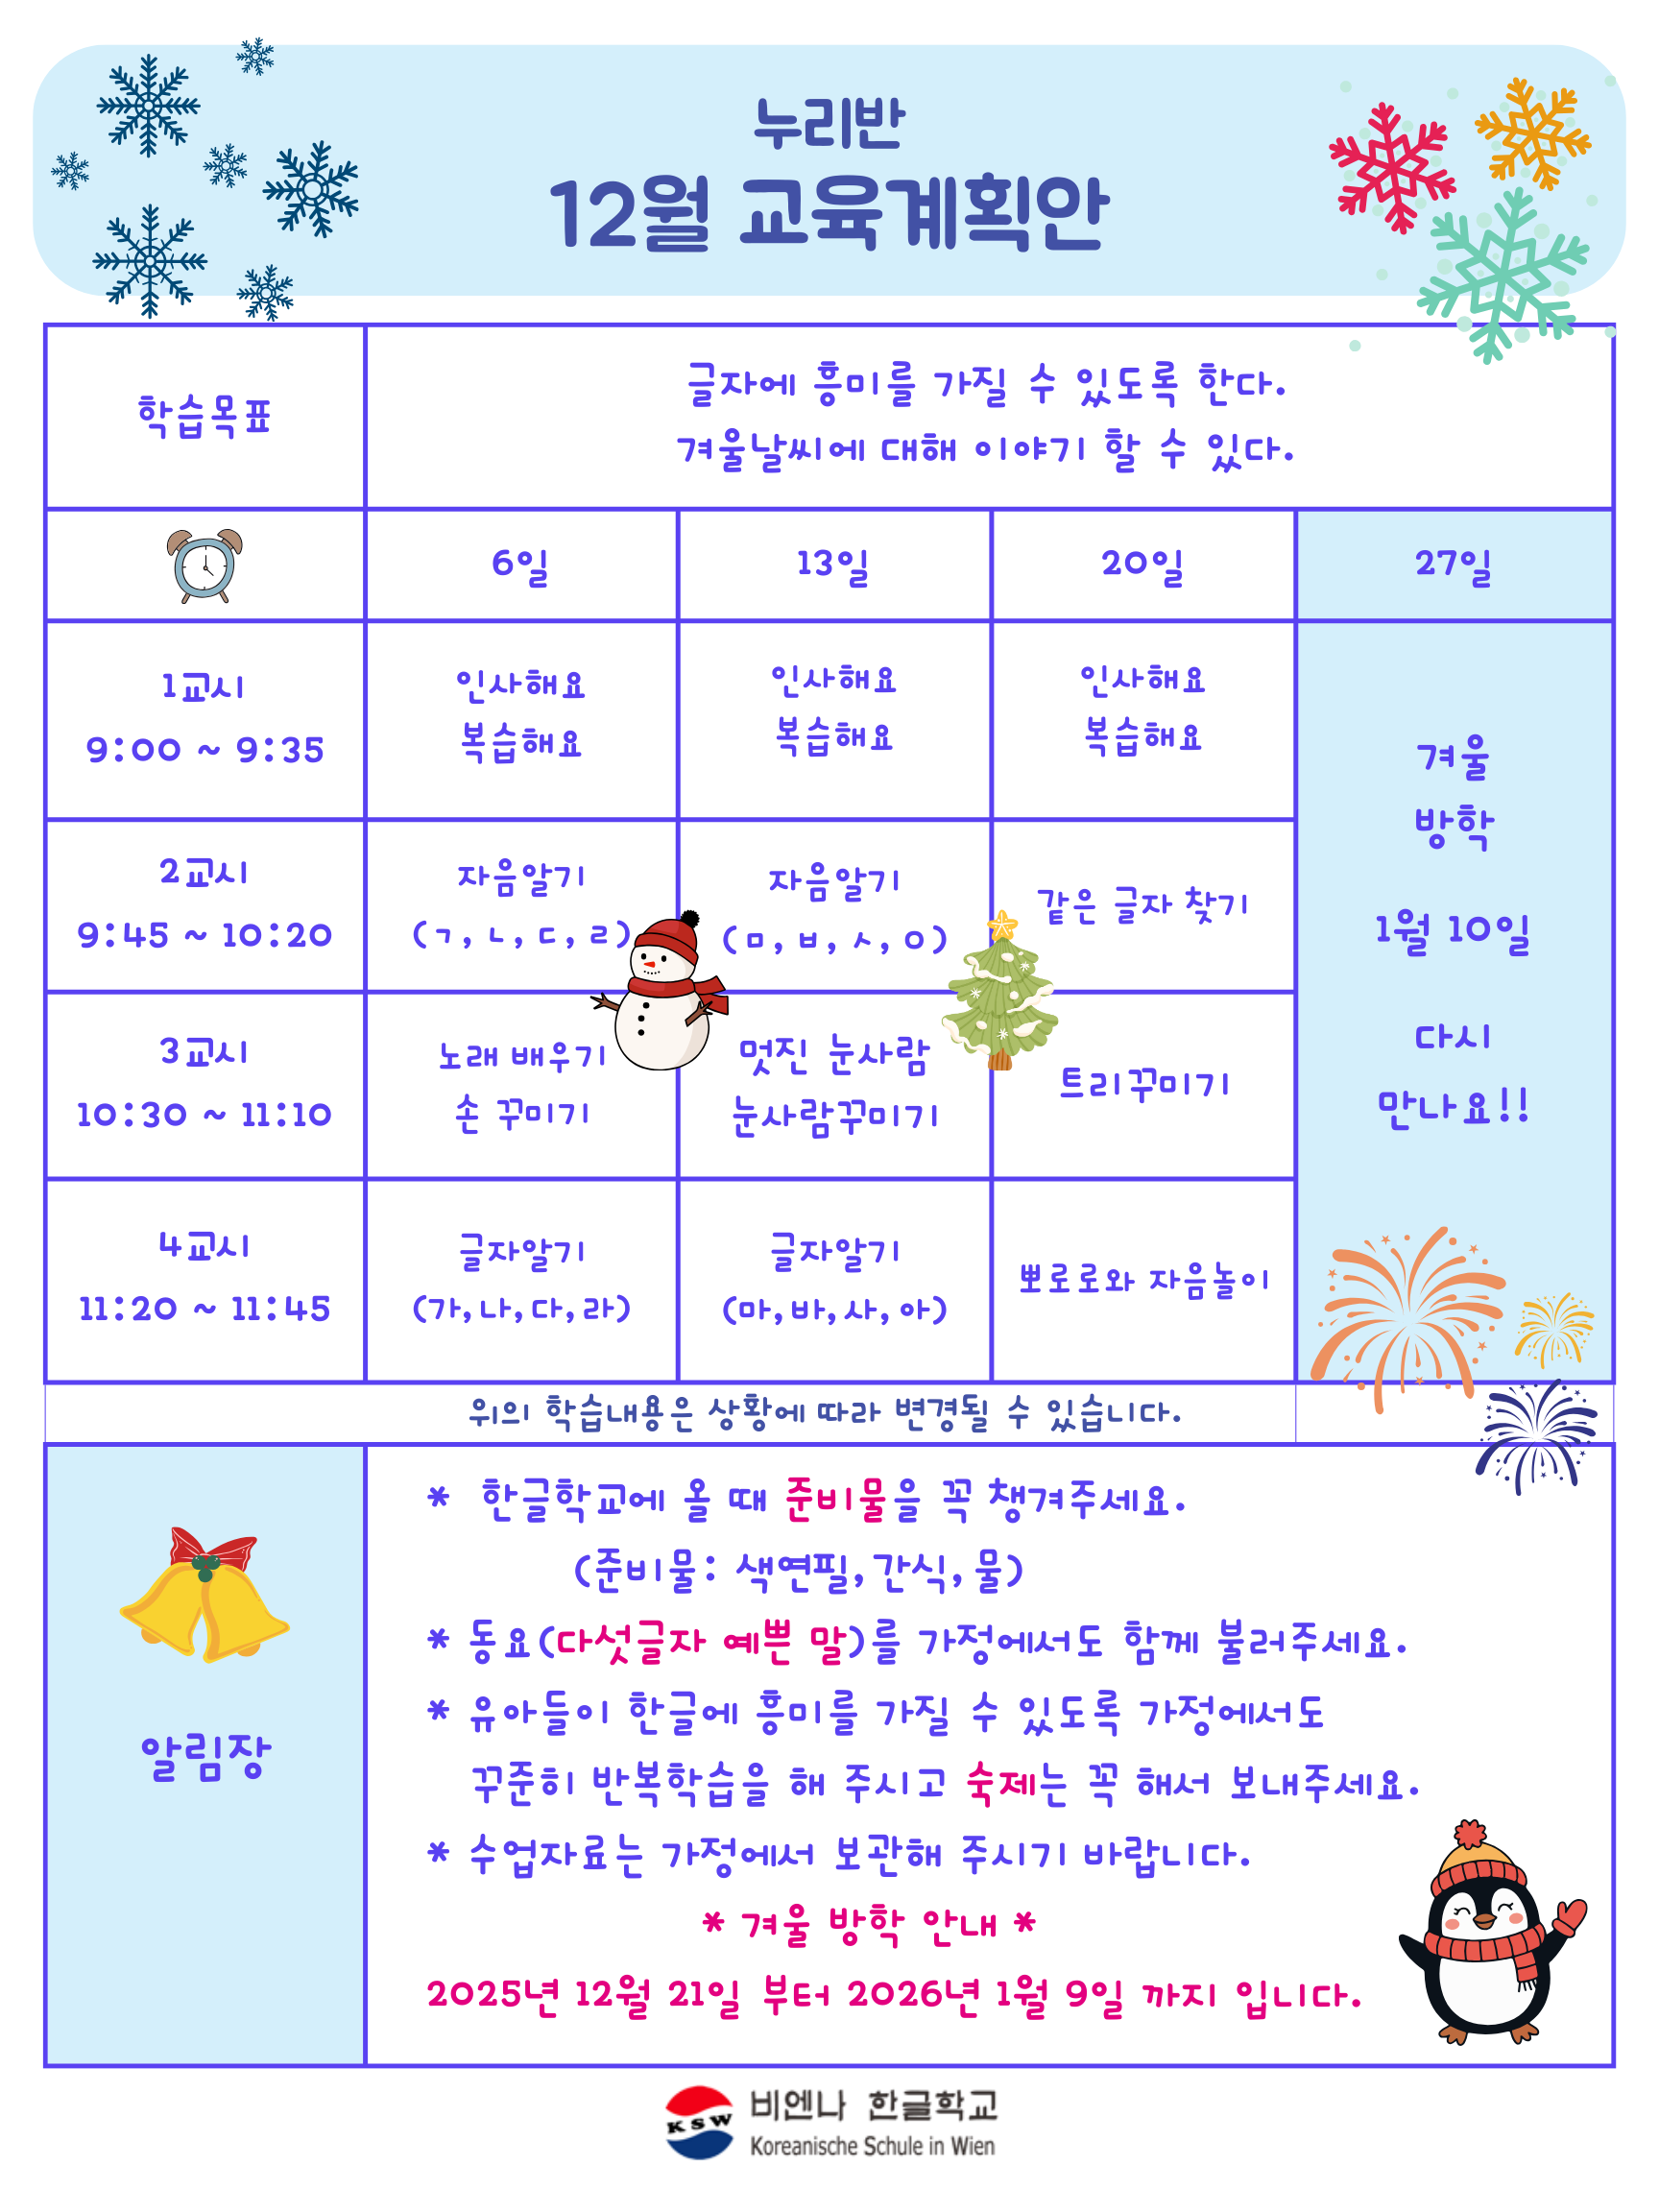 누리반
12월 교육계획안
학습목표
글자에 흥미를 가질 수 있도록 한다.
겨울날씨에 대해 이야기 할 수 있다.
6일
13일
20일
27일
1교시
9:00 ~ 9:35
인사해요
복습해요
인사해요
복습해요
인사해요
복습해요
2교시
9:45 ~ 10:20
자음알기
(ㄱ, ㄴ, ㄷ, ㄹ)
자음알기
(ㅁ, ㅂ, ㅅ, ㅇ)
같은 글자 찾기
3교시
10:30 ~ 11:10
노래 배우기
손 꾸미기
멋진 눈사람
눈사람꾸미기
트리꾸미기
4교시
11:20 ~ 11:45
글자알기
(가, 나, 다, 라)
글자알기
(마, 바, 사, 아)
뽀로로와 자음놀이
겨울
방학
1월 10일
다시
만나요!!
위의 학습내용은 상황에 따라 변경될 수 있습니다.
알림장
* 한글학교에 올 때 준비물을 꼭 챙겨주세요.
(준비물: 색연필, 간식, 물)
* 동요(다섯글자 예쁜 말)를 가정에서도 함께 불러주세요.
* 유아들이 한글에 흥미를 가질 수 있도록 가정에서도
꾸준히 반복학습을 해 주시고 숙제는 꼭 해서 보내주세요.
* 수업자료는 가정에서 보관해 주시기 바랍니다.
* 겨울 방학 안내 *
2025년 12월 21일 부터 2026년 1월 9일 까지 입니다.
KSW
비엔나 한글학교
Koreanische Schule in Wien